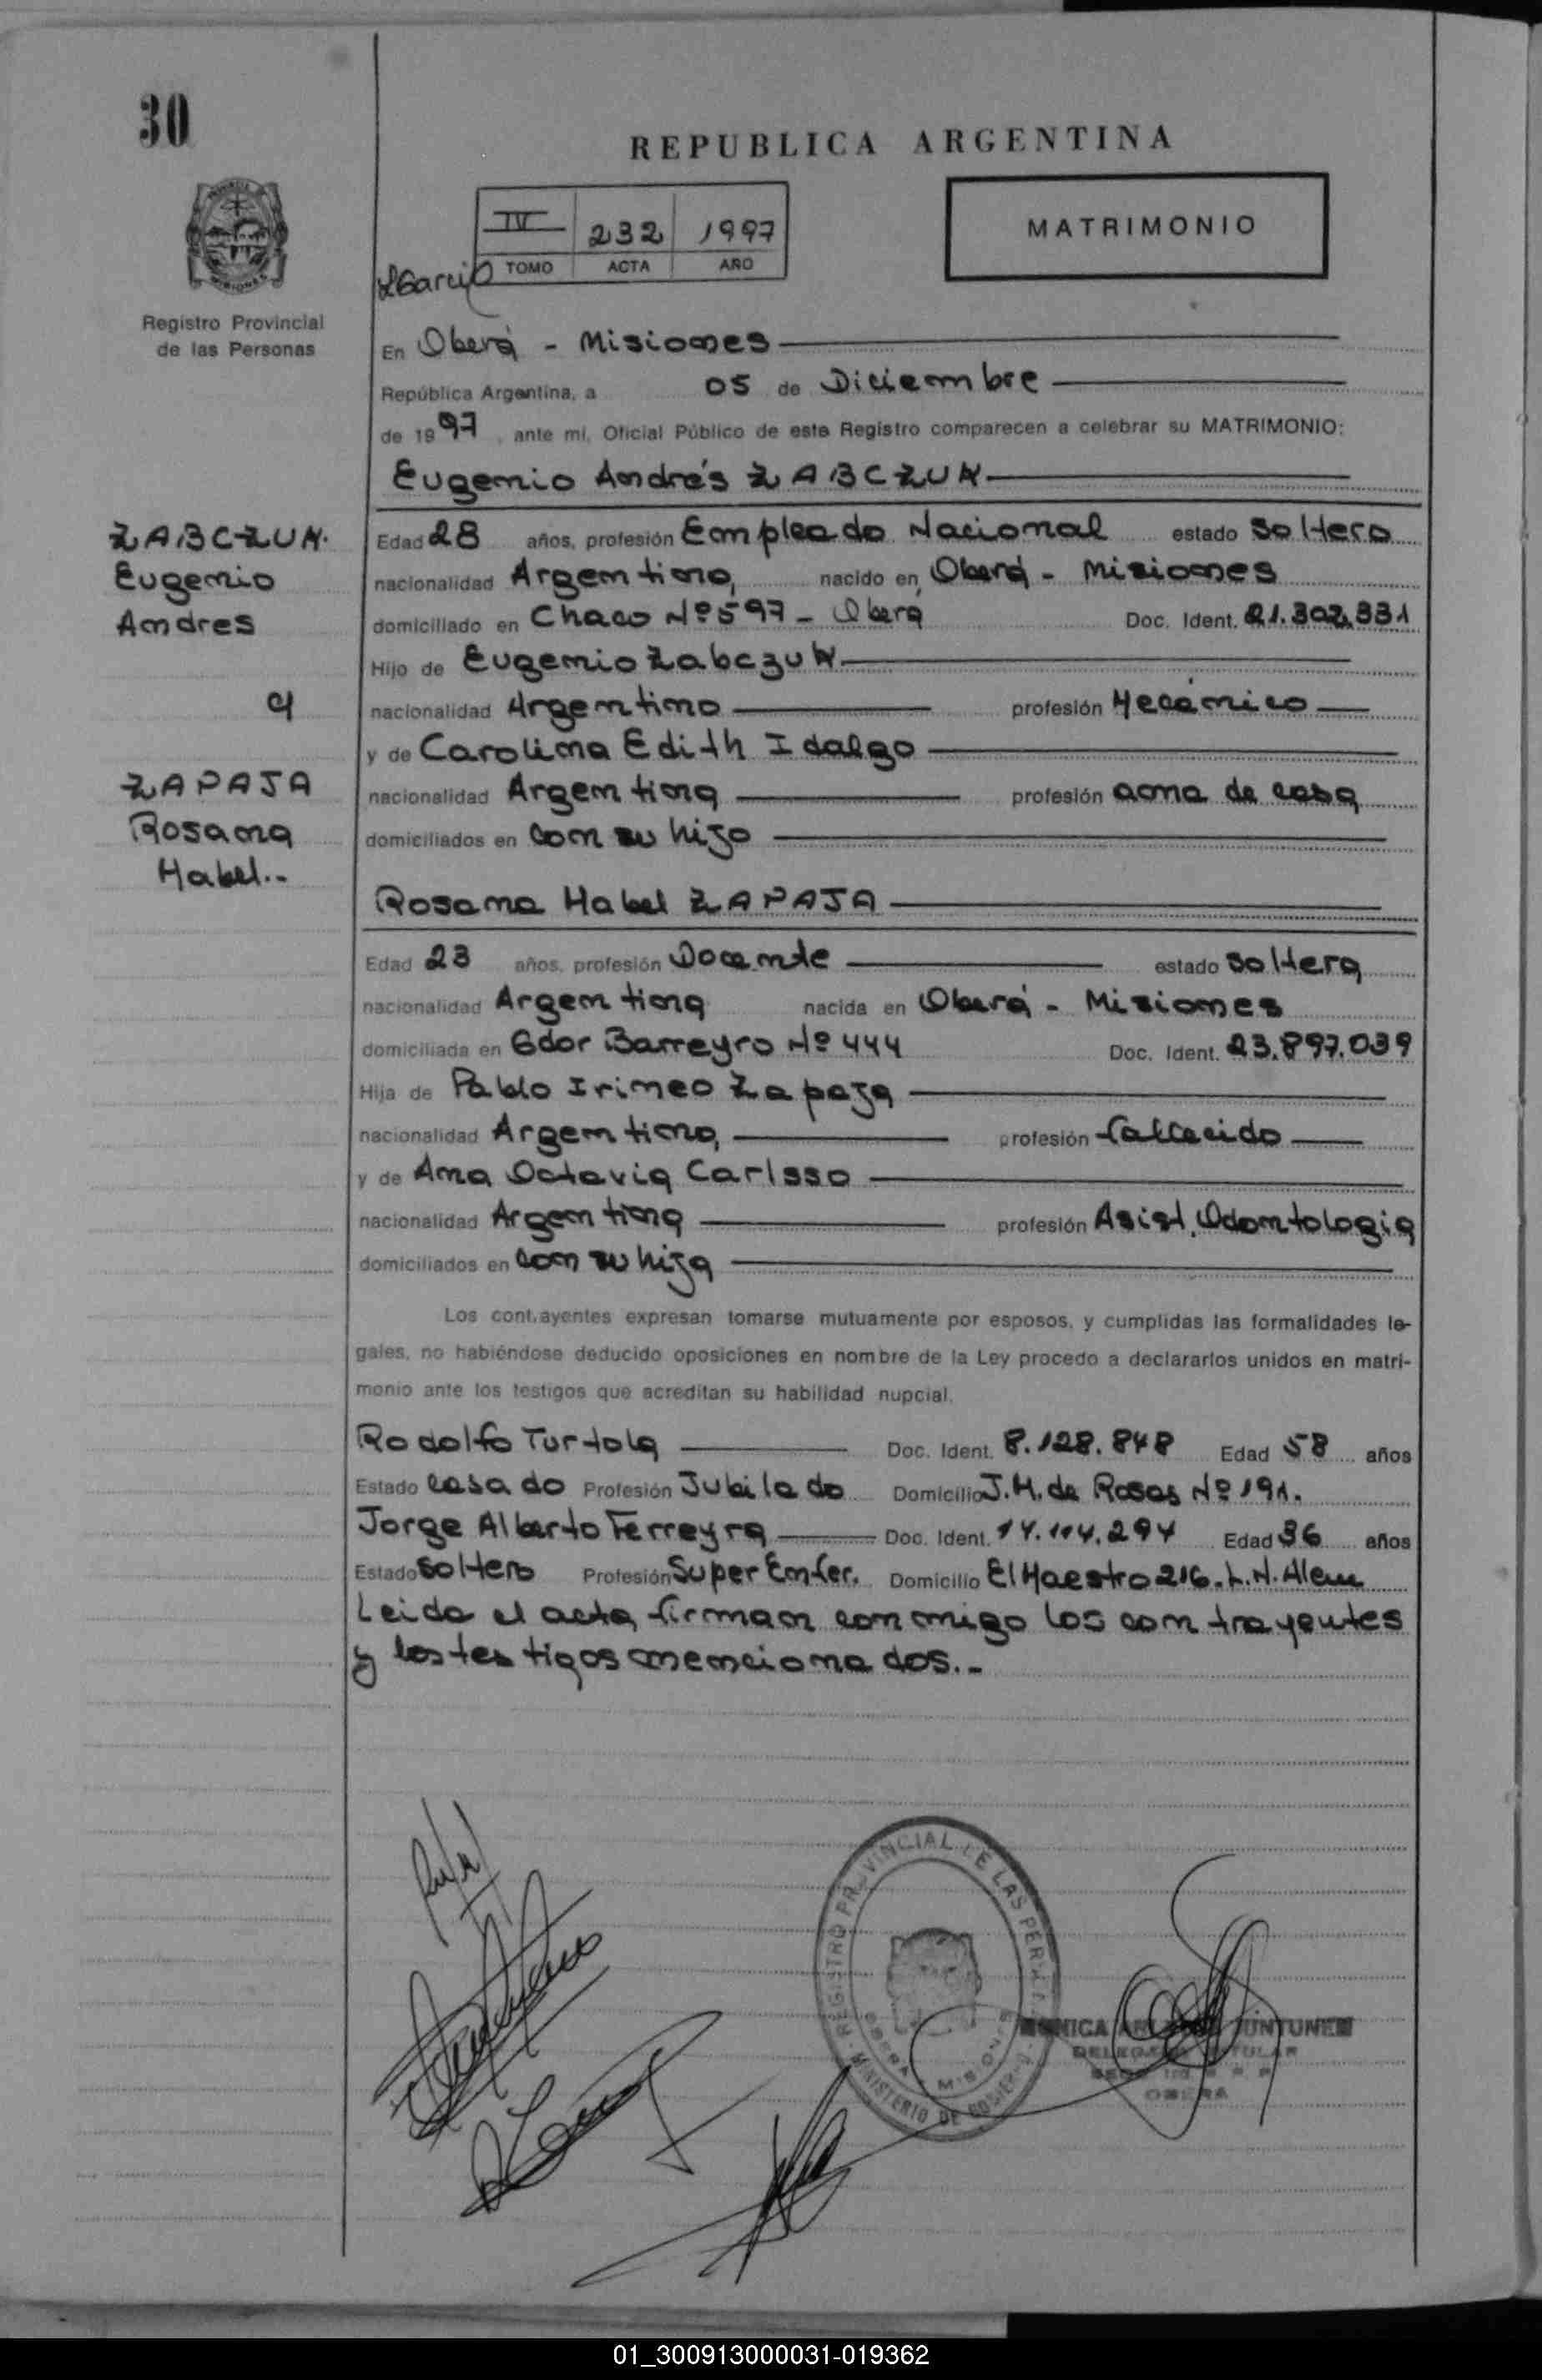 30
REPUBLICA ARGENTINA
IV 232 1997
TOMO ACTA AÑO
MATRIMONIO
Registro Provincial
de las Personas
En Oberá - Misiones
República Argentina, a 05 de Diciembre
de 1997, ante mí, Oficial Público de este Registro comparecen a celebrar su MATRIMONIO:
Eugenio Andrés ZABCZUK
ZABCZUK.
Eugenio
Andres
c/
ZAPAJA
Rosana
Mabel..
Edad 28 años, profesión Empleado Nacional estado soltero
nacionalidad Argentino, nacido en Oberá - Misiones
domiciliado en Chaco Nº 597 - Oberá Doc. Ident. 21.302.331
Hijo de Eugenio Zabczuk
nacionalidad Argentino profesión Mecánico
y de Carolina Edith Idalgo
nacionalidad Argentina profesión ama de casa
domiciliados en con su hijo
Rosana Mabel ZAPAJA
Edad 23 años, profesión Docente estado soltera
nacionalidad Argentina nacida en Oberá - Misiones
domiciliada en Gdor Barreyro Nº 444 Doc. Ident. 23.897.039
Hija de Pablo Irineo Zapaja
nacionalidad Argentino, profesión fallecido
y de Ana Octavia Carlsso
nacionalidad Argentina profesión Asist. Odontologia
domiciliados en con su hija
Los contrayentes expresan tomarse mutuamente por esposos, y cumplidas las formalidades le-
gales, no habiéndose deducido oposiciones en nombre de la Ley procedo a declararlos unidos en matri-
monio ante los testigos que acreditan su habilidad nupcial.
Rodolfo Turtola Doc. Ident. 8.128.848 Edad 58 años
Estado casado Profesión Jubilado Domicilio J.M. de Rosas Nº 191.
Jorge Alberto Ferreyra Doc. Ident. 14.114.294 Edad 36 años
Estado soltero Profesión Super Enfer. Domicilio El Maestro 216. L.N. Alem
Leida el acta, firman conmigo los contrayentes
y los testigos mencionados..-
REGISTRO PROVINCIAL DE LAS PERSONAS
MINISTERIO DE GOBIERNO
OBERA MISIONES
MONICA
TITULAR
OBERA
01_300913000031-019362